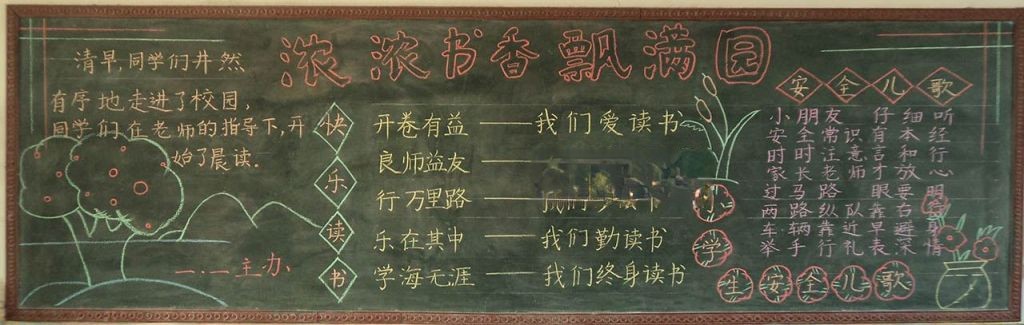 浓浓书香飘满园
清早,同学们井然
有序地走进了校园,
同学们在老师的指导下,开
始了晨读.
一.一主办
快乐读书
开卷有益——我们爱读书
良师益友——
行万里路——我们 读书
乐在其中——我们勤读书
学海无涯——我们终身读书
安全儿歌
小朋友 仔细听
安全常识有本经
时时注意言和行
家长老师才放心
过马路 眼
两路纵队靠
车辆靠近早避
举手行礼表 情
小学生安全儿歌